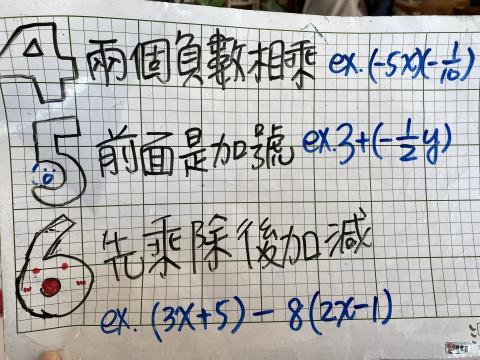 4 兩個負數相乘 ex. (-5x)(-1/10)
5 前面是加號 ex. 3+(-1/2y)
6 先乘除後加減
ex. (3x+5)-8(2x-1)